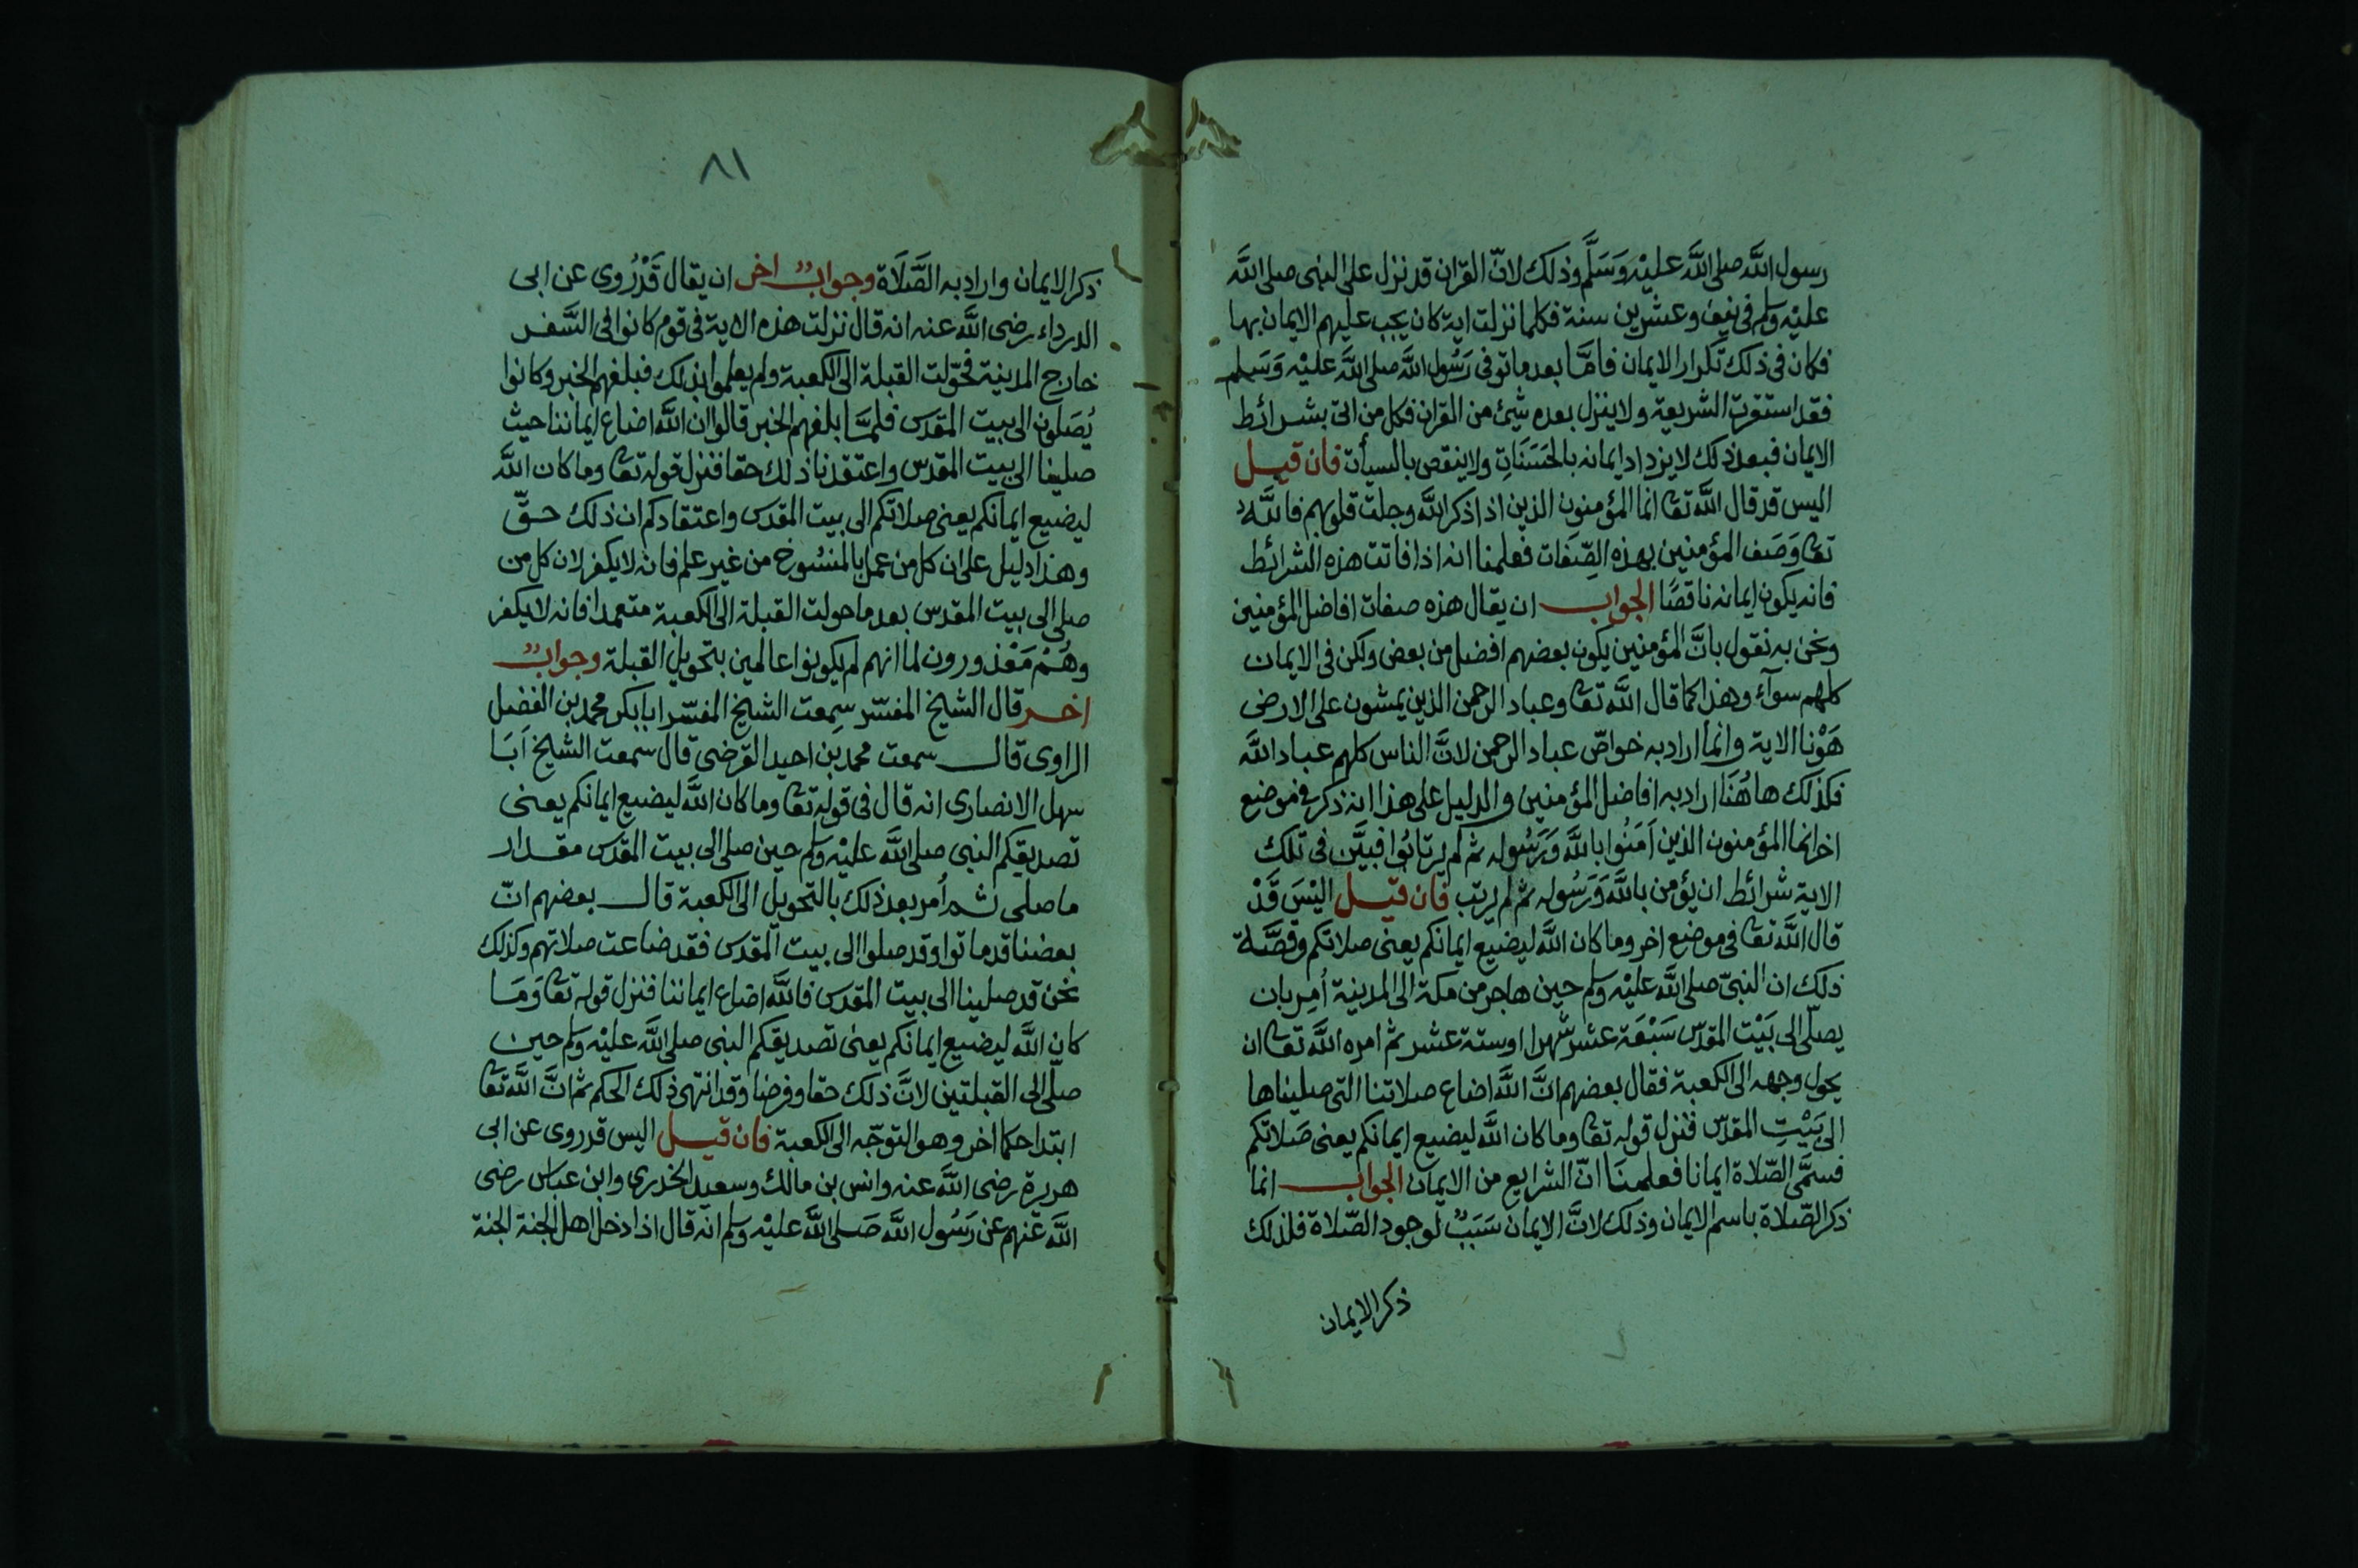 رسول اللّه صلى اللّه عليه وَسَلَّم وذلك لانّ القران قد نزل على النبى صلى اللّه
عليه وسلم فى نيف وعشرين سنة فكلما نزلت اية كان يجب عليهم الايمان بها
فكان فى ذلك تكرار الايمان فامَّا بعد ما توفى رَسُول اللّه صلى اللّه عليه وَسَلم
فقد استقرت الشريعة ولا ينزل بعده شيئ من القران فكل من اتى بشرائط
الايمان فبعد ذلك لا يزداد ايمانه بالحَسَنَاتِ ولا ينقص بالسيأت فان قيل
اليس قد قال اللّه تعا انما المؤمنون الذين اذا ذكر اللّه وجلت قلوبهم فاللّه
تعا وَصَف المؤمنين بهذه الصِّفَات فعلمنا انه اذا فاتت هذه الشرائط
فانه يكون ايمانه ناقصًا الجواب ان يقال هذه صفات افاضل المؤمنين
ونحن به نقول بانَّ المؤمنين يكون بعضهم افضل من بعض ولكن فى الايمان
كلهم سوآء وهذا كما قال اللّه تعا وعباد الرحمن الذين يمشون على الارض
هَوْنا الاية وانما اراد به خواصّ عباد الرحمن لانَّ الناس كلهم عباد اللّه
فكذلك هاهُنَا اراد به افاضل المؤمنين والدليل على هذا انه ذكر فى موضع
اخر انما المؤمنون الذين اَمَنُوا باللّه وَرَسُوله ثم لم يرتابُوا فبيَّن فى تلك
الاية شرائط ان يؤمن باللّه وَرَسُوله ثم لم يرتب فان قيل اليْسَ قَدْ
قال اللّه تعا فى موضع اخر وما كان اللّه ليضيع ايمانكم يعنى صلاتكم وقصَّة
ذلك ان النبىّ صلى اللّه عليه وسلم حين هاجر من مكة الى المدينة أُمِر بان
يصلّى الى بَيْت المقدّس سَبْعَة عشر شهرا اوستة عشر ثم امره اللّه تعا ان
يحول وجهه الى الكعبة فقال بعضهم انَّ اللّه اضاع صلاتنا التى صليناها
الى بَيْتِ المقدّس فنزل قوله تعا وما كان اللّه ليضيع ايمانكم يعنى صَلاتكم
فسمَّى الصّلاة ايمانا فعلمنَا انّ الشرايع من الايمان الجواب انما
ذكر الصّلاة باسم الايمان وذلك لانَّ الايمان سَبَبٌ لوجود الصّلاة فلذلك
ذكر الايمان
٨١
ذكر الايمان واراد به الصَّلَاة وجوابٌ اخر ان يقال قَدْ رُوى عن ابى
الدرداء رضى اللّه عنه انه قال نزلت هذه الاية فى قوم كانوا فى السَّفر
خارج المدينة فحوّلت القبلة الى الكعبة ولم يعلموا بذلك فبلغهم الخبر وكانوا
يُصَلون الى بيت المقدس فلمَّا بلغهم الخبر قالوا ان اللّه اضاع ايماننا حيث
صلينا الى بيت المقدس واعتقدنا ذلك حقا فنزل قوله تعا وما كان اللّه
ليضيع ايمانكم يعنى صلاتكم الى بيت المقدس واعتقادكم ان ذلك حقّ
وهذا دليل على ان كل من عمل بالمنسُوخ من غير علم فانه لا يكفر لان كل من
صلى الى بيت المقدس بعد ما حولت القبلة الى الكعبة متعمدا فانه لا يكفر
وهُمْ مَعْذورون لما انهم لم يكونوا عالمين بتحويل القبلة وجوابٌ
اخر قال الشيخ المفسّر سمعت الشيخ المفسّر ابابكر محمد بن الفضل
الراوى قال سمعت محمد بن احيد القرضى قال سمعت الشيخ اَبَا
سهل الانصارى انه قال فى قوله تعا وما كان اللّه ليضيع ايمانكم يعنى
تصديقكم النبى صلى اللّه عليه وسلم حين صلى الى بيت المقدس مقدار
ما صلى ثم اُمر بعد ذلك بالتحويل الى الكعبة قال بعضهم انّ
بعضنا قد ماتوا وقد صلوا الى بيت المقدس فقد ضاعت صلاتهم وكذلك
نحن قد صلينا الى بيت المقدس فاللّه اضاع ايماننا فنزل قوله تعا وَمَا
كان اللّه ليضيع ايمانكم يعنى تصديقكم النبى صلى اللّه عليه وسلم حين
صلّى الى القبلتين لانَّ ذلك حقا وفرضا وقد انتهى ذلك الحكم ثم انَّ اللّه تعا
ابتدا حكما اخر وهو التوجّه الى الكعبة فان قيل اليس قد روى عن ابى
هريرة رضى اللّه عنه وانس بن مالك وسعيد الخدرى وابن عباس رضى
اللّه عنهم عن رَسُول اللّه صَلى اللّه عليه وسلم انه قال اذا دخل اهل الجنة الجنة